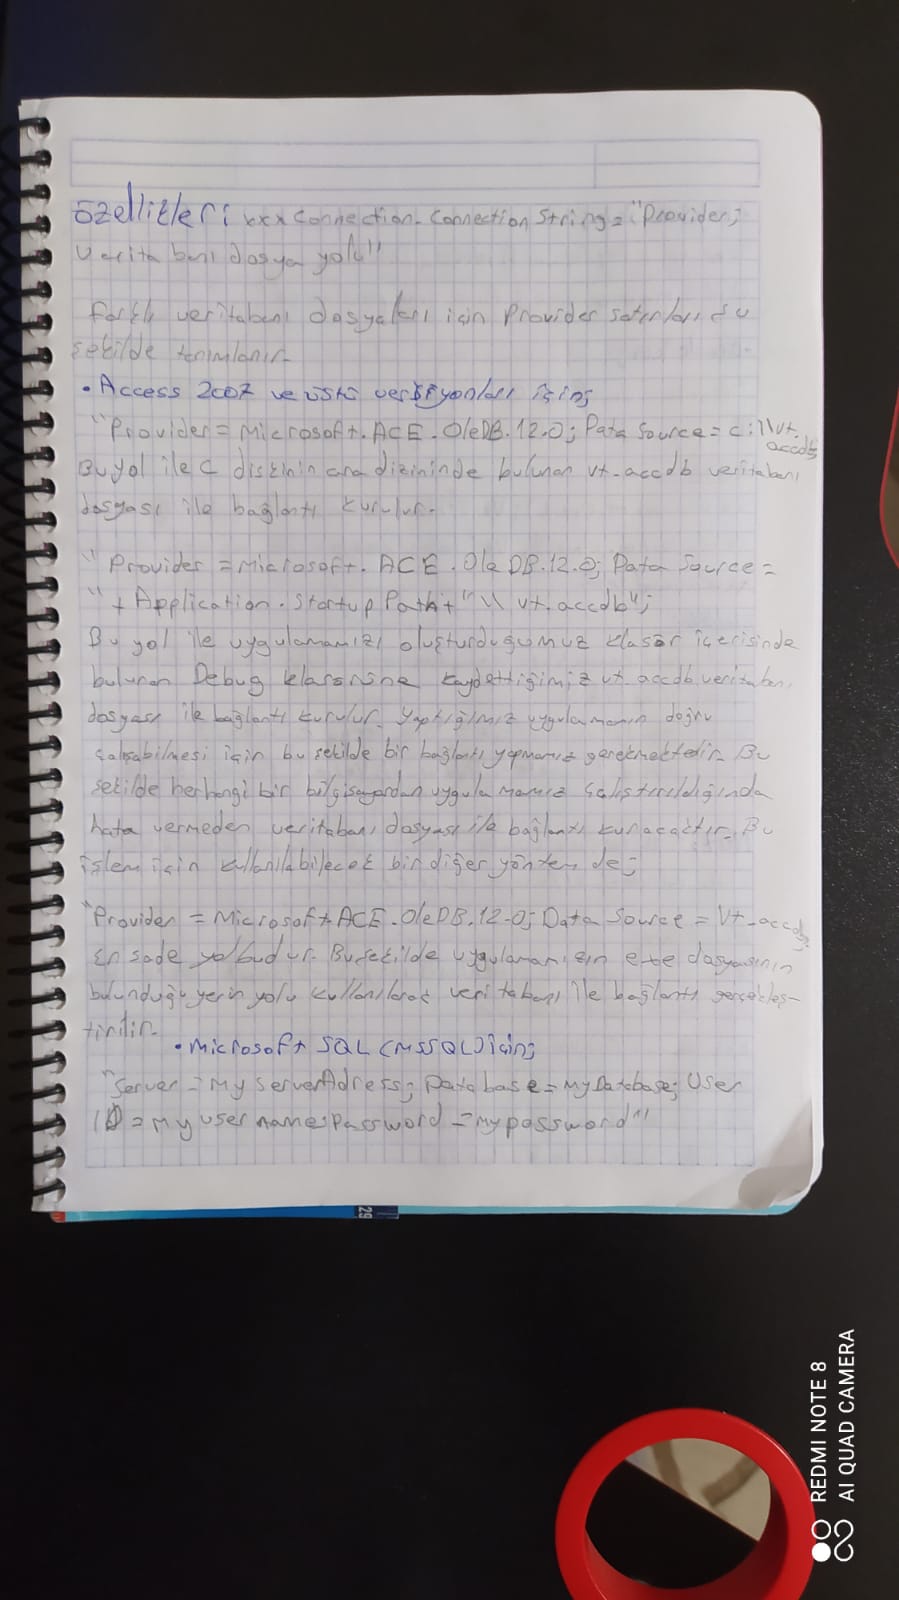 Özellikleri xxxConnection.ConnectionString="Provider;
Veritabanı dosya yolu"
Farklı veritabanı dosyaları için Provider satırları şu
şekilde tanımlanır.
• Access 2007 ve üstü versiyonları için;
"Provider=Microsoft.ACE.OleDB.12.0; Data Source=c:\\vt.
accdb
Bu yol ile C diskinin ana dizininde bulunan vt.accdb veritabanı
dosyası ile bağlantı kurulur.
"Provider=Microsoft.ACE.OleDB.12.0; Data Source=
"+Application.StartupPath+"\\vt.accdb";
Bu yol ile uygulamamızı oluşturduğumuz klasör içerisinde
bulunan Debug klasörüne kaydettiğimiz vt.accdb veritabanı
dosyası ile bağlantı kurulur. Yaptığımız uygulamanın doğru
çalışabilmesi için bu şekilde bir bağlantı yapmamız gerekmektedir. Bu
şekilde herhangi bir bilgisayardan uygulamamız çalıştırıldığında
hata vermeden veritabanı dosyası ile bağlantı kuracaktır. Bu
işlem için kullanılabilecek bir diğer yöntem de;
"Provider=Microsoft ACE.OleDB.12.0; Data Source=Vt.accdb
En sade yol budur. Bu şekilde uygulamanızın exe dosyasının
bulunduğu yerin yolu kullanılarak veri tabanı ile bağlantı gerçekleş-
tirilir.
• Microsoft SQL (MSSQL) için;
"Server=My serverAdress; Database=MyDatabase; User
ID=My username;Password=Mypassword"
REDMI NOTE 8
AI QUAD CAMERA
29